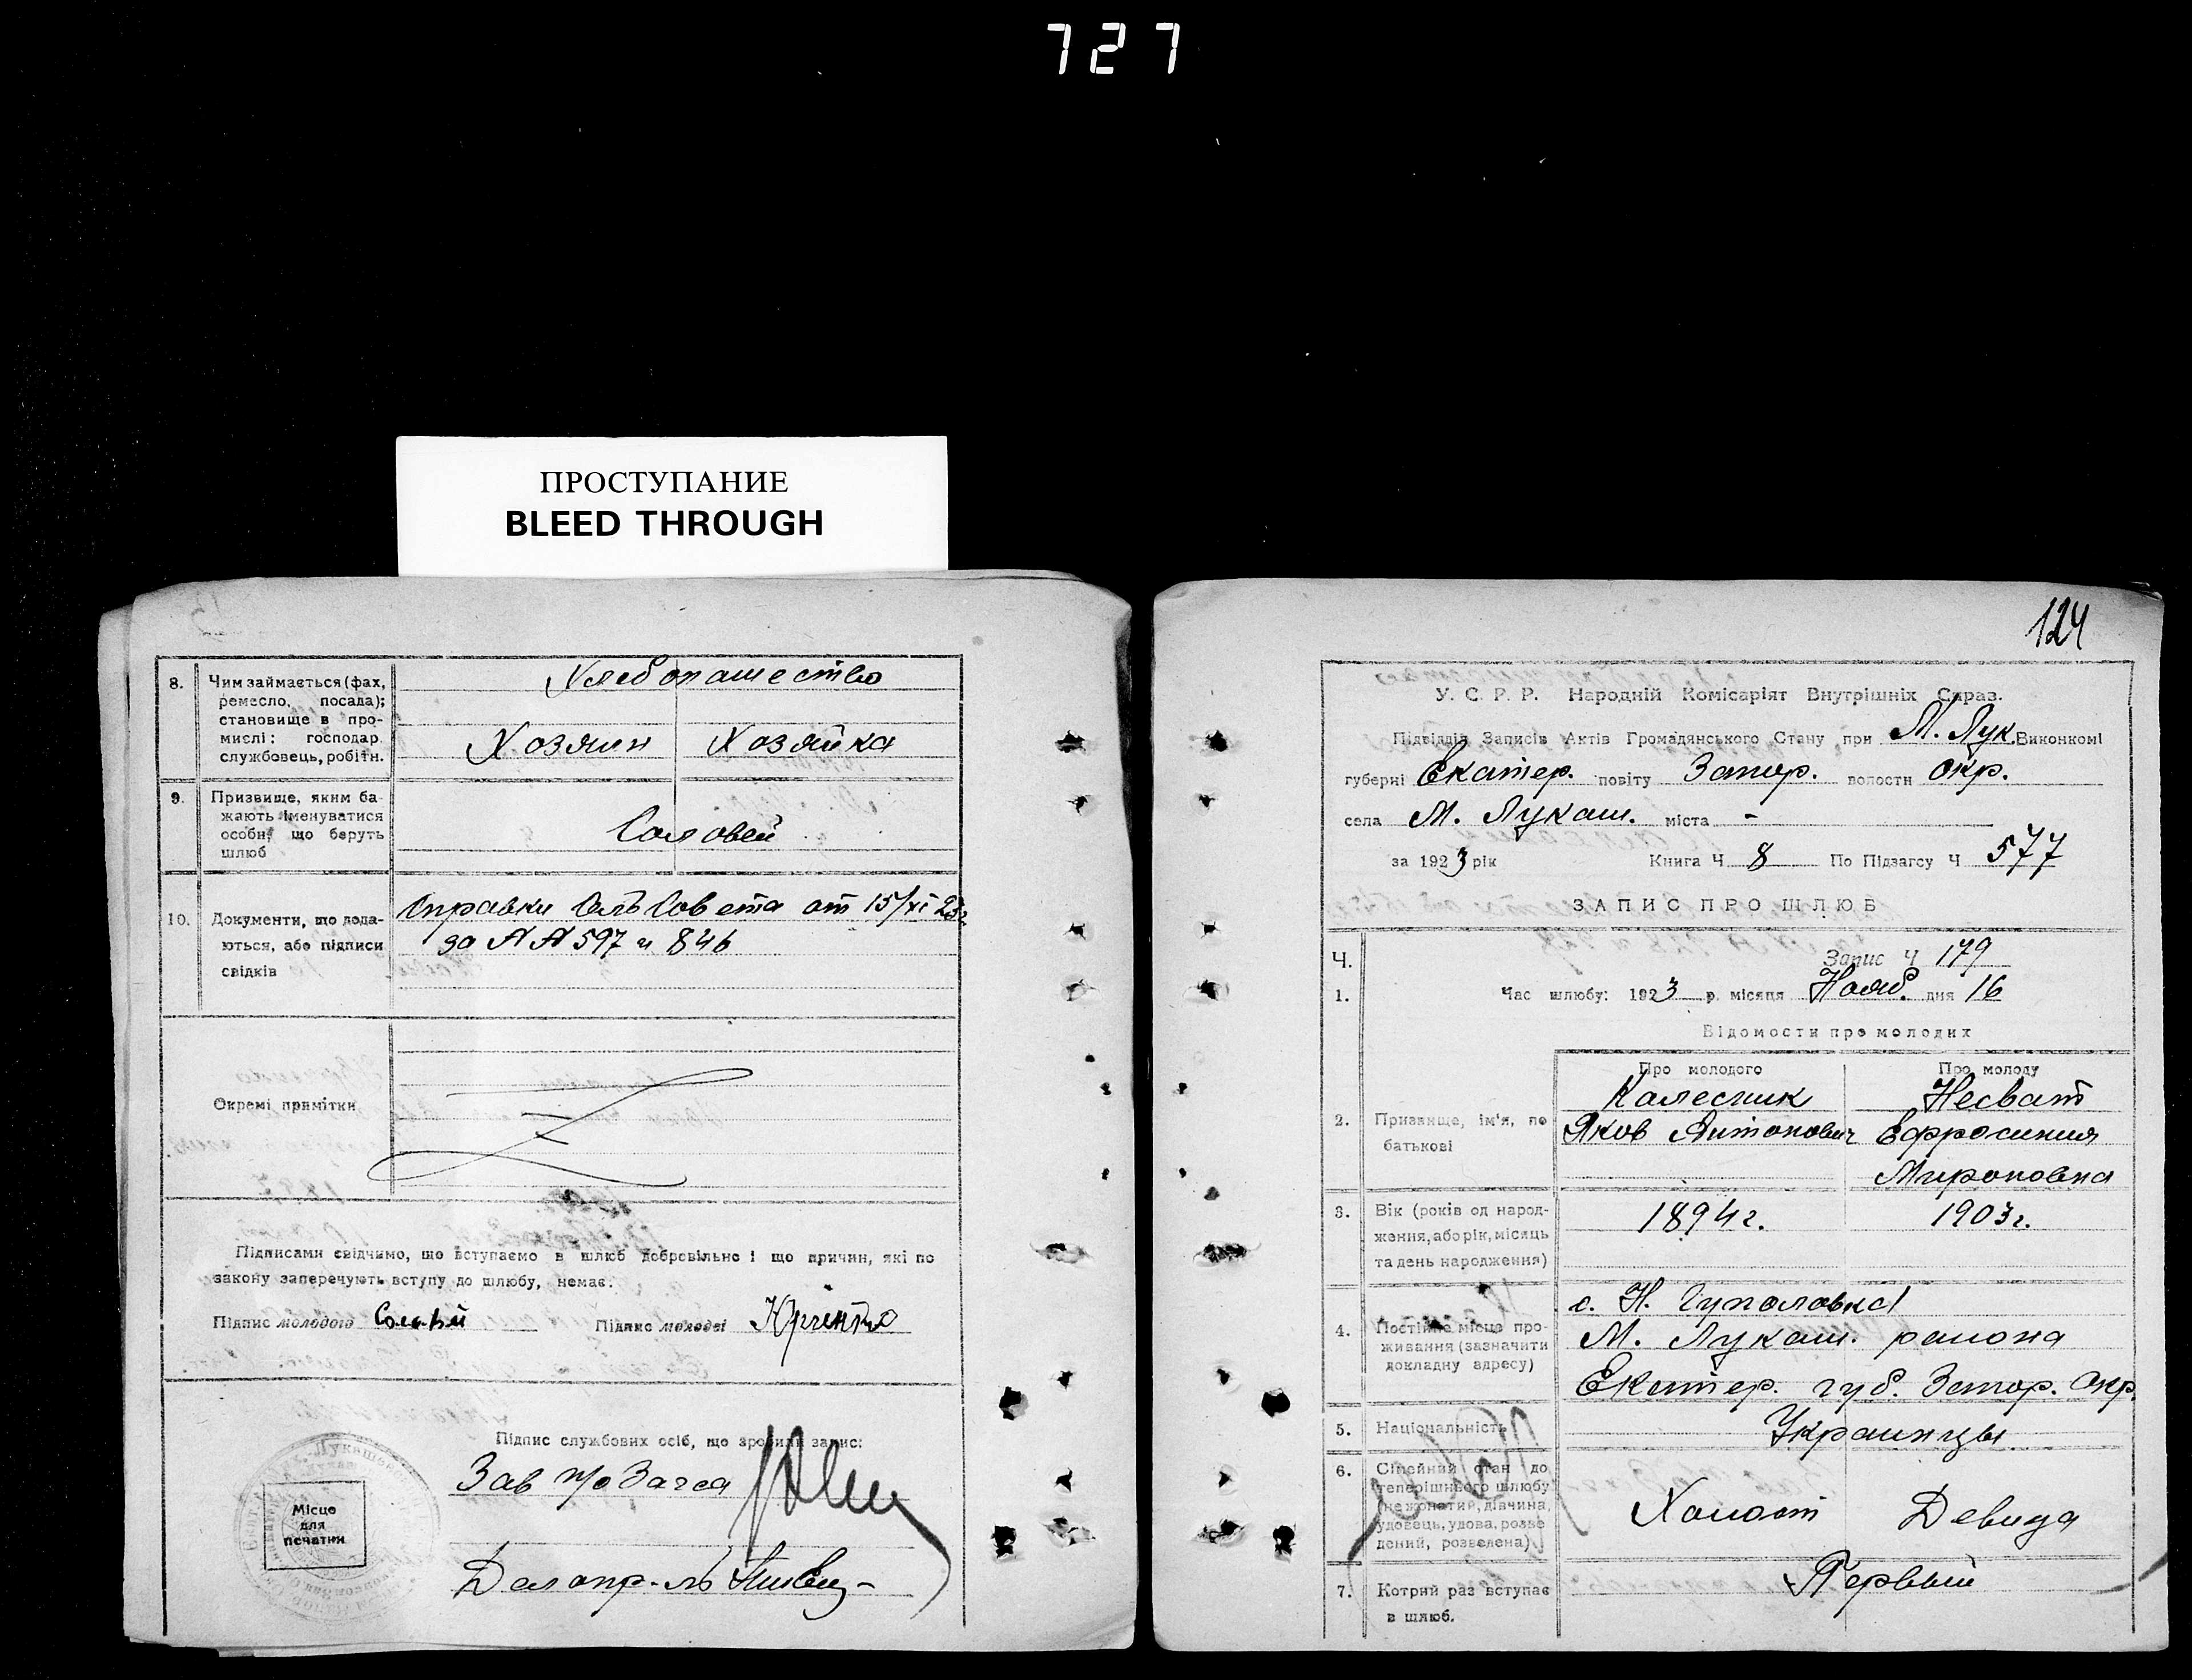 727
ПРОСТУПАНИЕ
BLEED THROUGH
8. Чим займається (фах, ремесло, посада); становище в промислі: господар службовець, робітн.
Хлебопашество
Хозяин Хозяйка
9. Призвище, яким бажають іменуватися особи, що беруть шлюб
Соловей
10. Документи, що додаються, або підписи свідків
Справки СельСовета от 15/XI 23г
за № № 597 и 846
Окремі примітки
Підписами свідчимо, що вступаємо в шлюб добровільно і що причин, які по
закону заперечують вступу до шлюбу, немає.
Підпис молодого Соловей Підпис молодої
Підпис службових осіб, що зробили запис:
Зав п/о Загса
Місце
для
печатки
Делопр-ль
124
У. С. Р. Р. Народній Комісаріят Внутрішніх Справ.
Підвідділ Записів Актів Громадянського Стану при М. Лук. Виконкомі
губерні Екатер. повіту Запор. волости окр.
села М. Лукаш. міста -
за 1923 рік Книга Ч 8 По Підзагсу Ч 577
ЗАПИС ПРО ШЛЮБ
Ч. Запис Ч 179
1. Час шлюбу: 1923 р. місяця Нояб. дня 16
Відомости про молодих
Про молодого Про молоду
2. Призвище, ім'я, по батькові
Калесник Несват
Яков Антонович Ефросиния
Мироновна
3. Вік (років од народження, або рік, місяць та день народження)
1894г. 1903г.
4. Постійне місце проживання (зазначити докладну адресу)
с. Н. Гуполовка
М. Лукаш. района
Екатер. губ. Запор. Окр.
5. Національність
Украинцы
6. Сімейний стан до теперішнього шлюбу (нежонатий, дівчина, удовець, удова, розведений, розведена)
Холост Девица
7. Котрий раз вступає в шлюб.
Первый